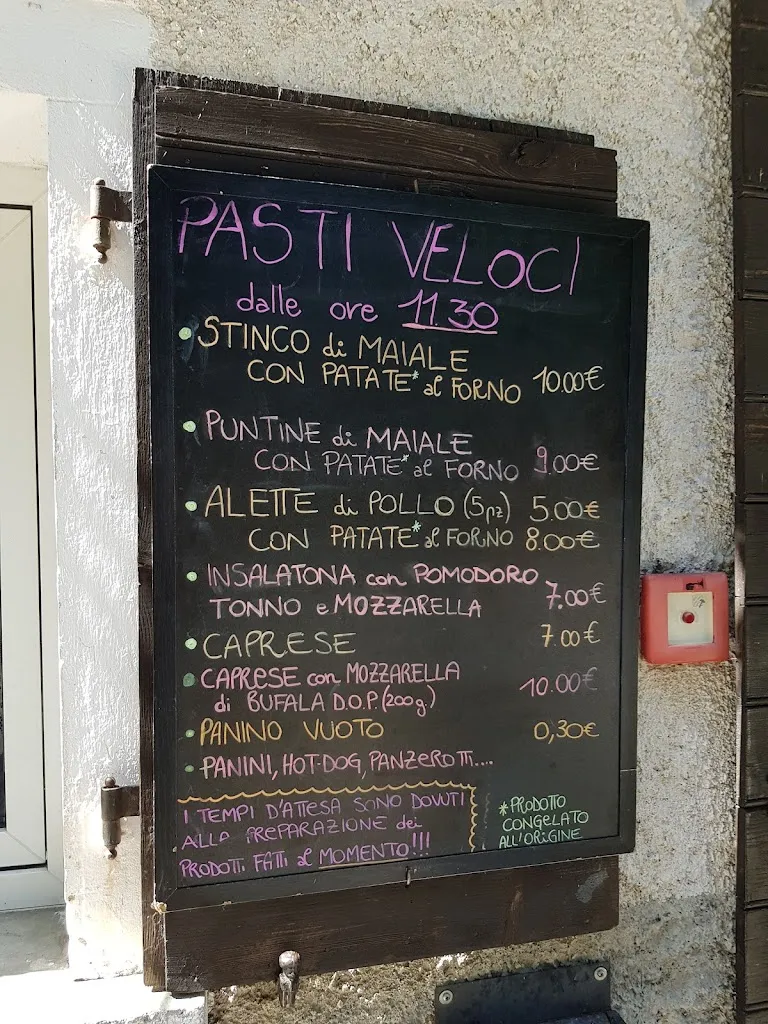 PASTI VELOCI
dalle ore 11.30
STINCO di MAIALE
CON PATATE* al FORNO 10.00€
PUNTINE di MAIALE
CON PATATE* al FORNO 9.00€
ALETTE di POLLO (5pz) 5.00€
CON PATATE* al FORNO 8.00€
INSALATONA con POMODORO
TONNO e MOZZARELLA 7.00€
CAPRESE 7.00€
CAPRESE con MOZZARELLA
di BUFALA D.O.P. (200g.) 10.00€
PANINO VUOTO 0,30€
PANINI, HOT-DOG, PANZEROTTI....
I TEMPI D'ATTESA SONO DOVUTI
ALLA PREPARAZIONE dei
PRODOTTI FATTI al MOMENTO!!!
*PRODOTTO
CONGELATO
ALL'ORIGINE